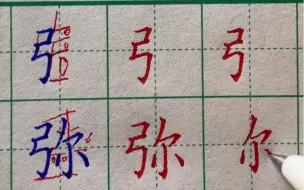 弓 弓 弓
弥 弥 尔